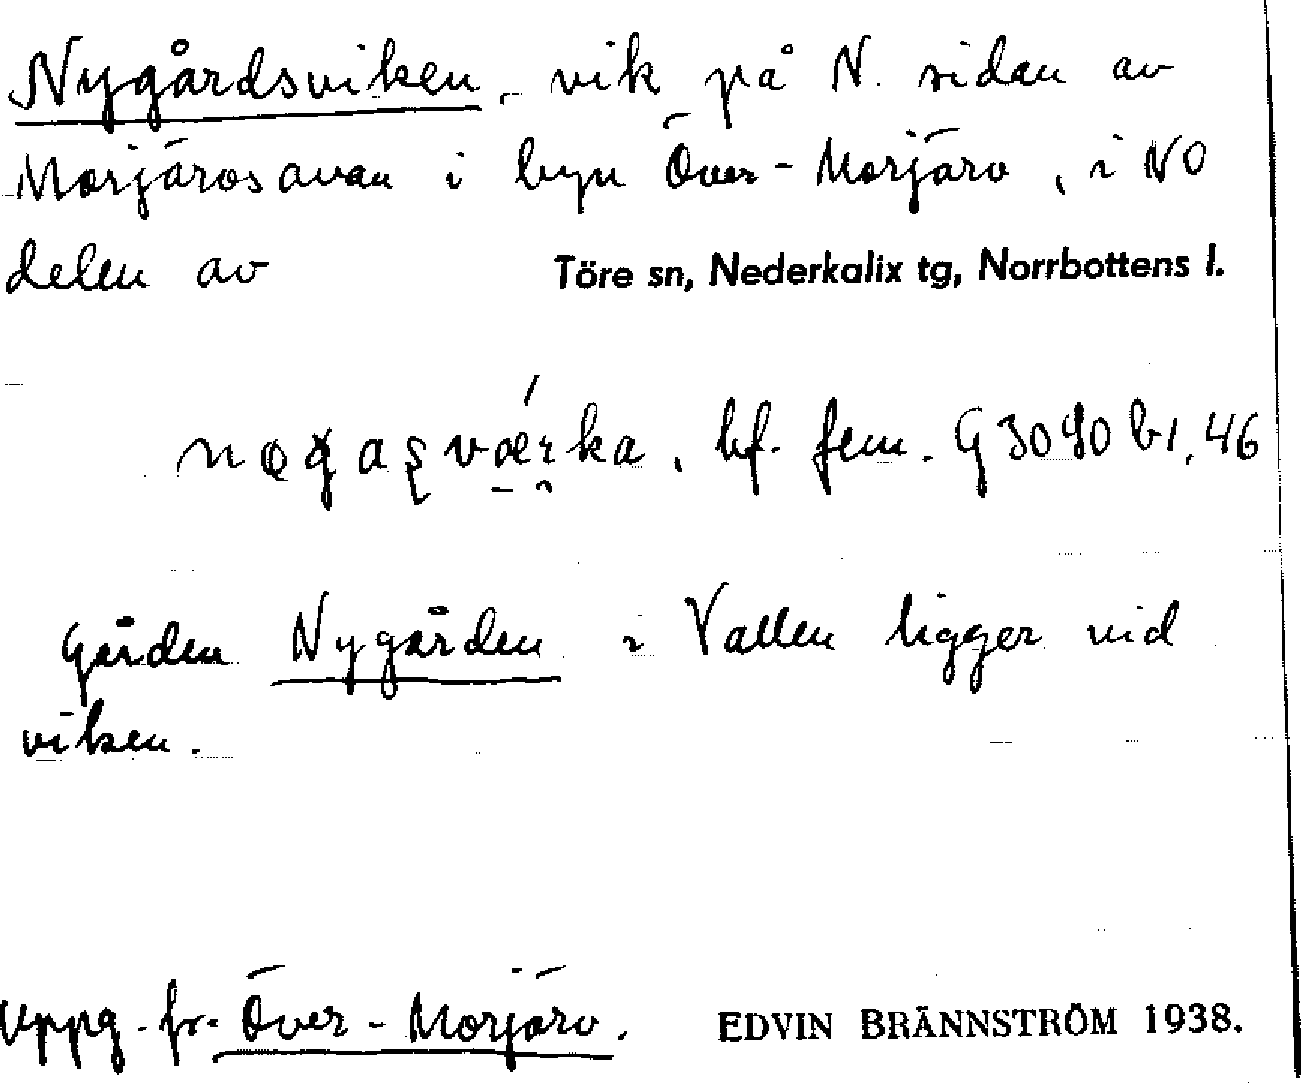 Nygårdsviken, vik på N. sidan av
Morjärvsavan i byn Över-Morjärv, i NO
delen av Töre sn, Nederkalix tg, Norrbottens l.
bf. fem. G 3090 b1, 46
Gården Nygården i Vallen ligger vid
viken.
Uppg. fr. Över-Morjärv. EDVIN BRÄNNSTRÖM 1938.